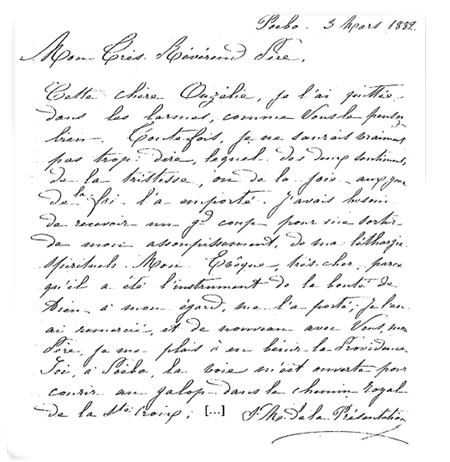 Poëbo. 3 Mars 1882.
Mon Très Révérend Père,
Cette chère Ouzélie, je l'ai quittée
dans les larmes, comme Vous le pensez
bien. Toutefois, je ne saurais vraiment
pas trop dire, lequel des deux sentiments,
de la tristesse, ou de la joie aux yeux
de la foi l'a emporté. J'avais besoin
de recevoir un gd coup pour me sortir
de mon assoupissement, de ma léthargie
spirituelle. Mon Evêque, très-cher, parce
qu'il a été l'instrument de la bonté de
Dieu à mon égard, me l'a porté; je l'en
ai remercié, et de nouveau avec Vous, mon
Père, je me plais à en bénir la Providence
Ici, à Poëbo, la voie m'est ouverte pour
courir au galop dans le chemin royal
de la Ste Croix; [...] S. M. de la Présentation